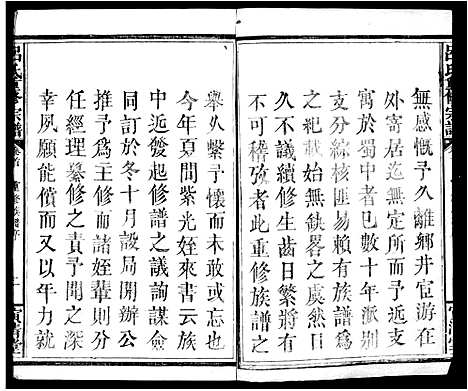 無感慨予久離鄉井宦游在
外寄居無定所而于近支
寓於蜀中者就十年派別
支分綜核匪易賴有族譜在
差無缺畧之虞然日
久不議續修生齒日繁將有
不可稽弥者此重修族譜
之
舉久繫予懷而未敢或忘也
今年夏間紫光姪來書云族
中近發起修譜之議詢謀僉
同訂於冬十月設局開辦公
推予為王修而諸姪輩則分
任經理纂修之責予聞之深
幸夙願能償而又以年力就
呂氏續修宗譜
卷首
重修族譜序